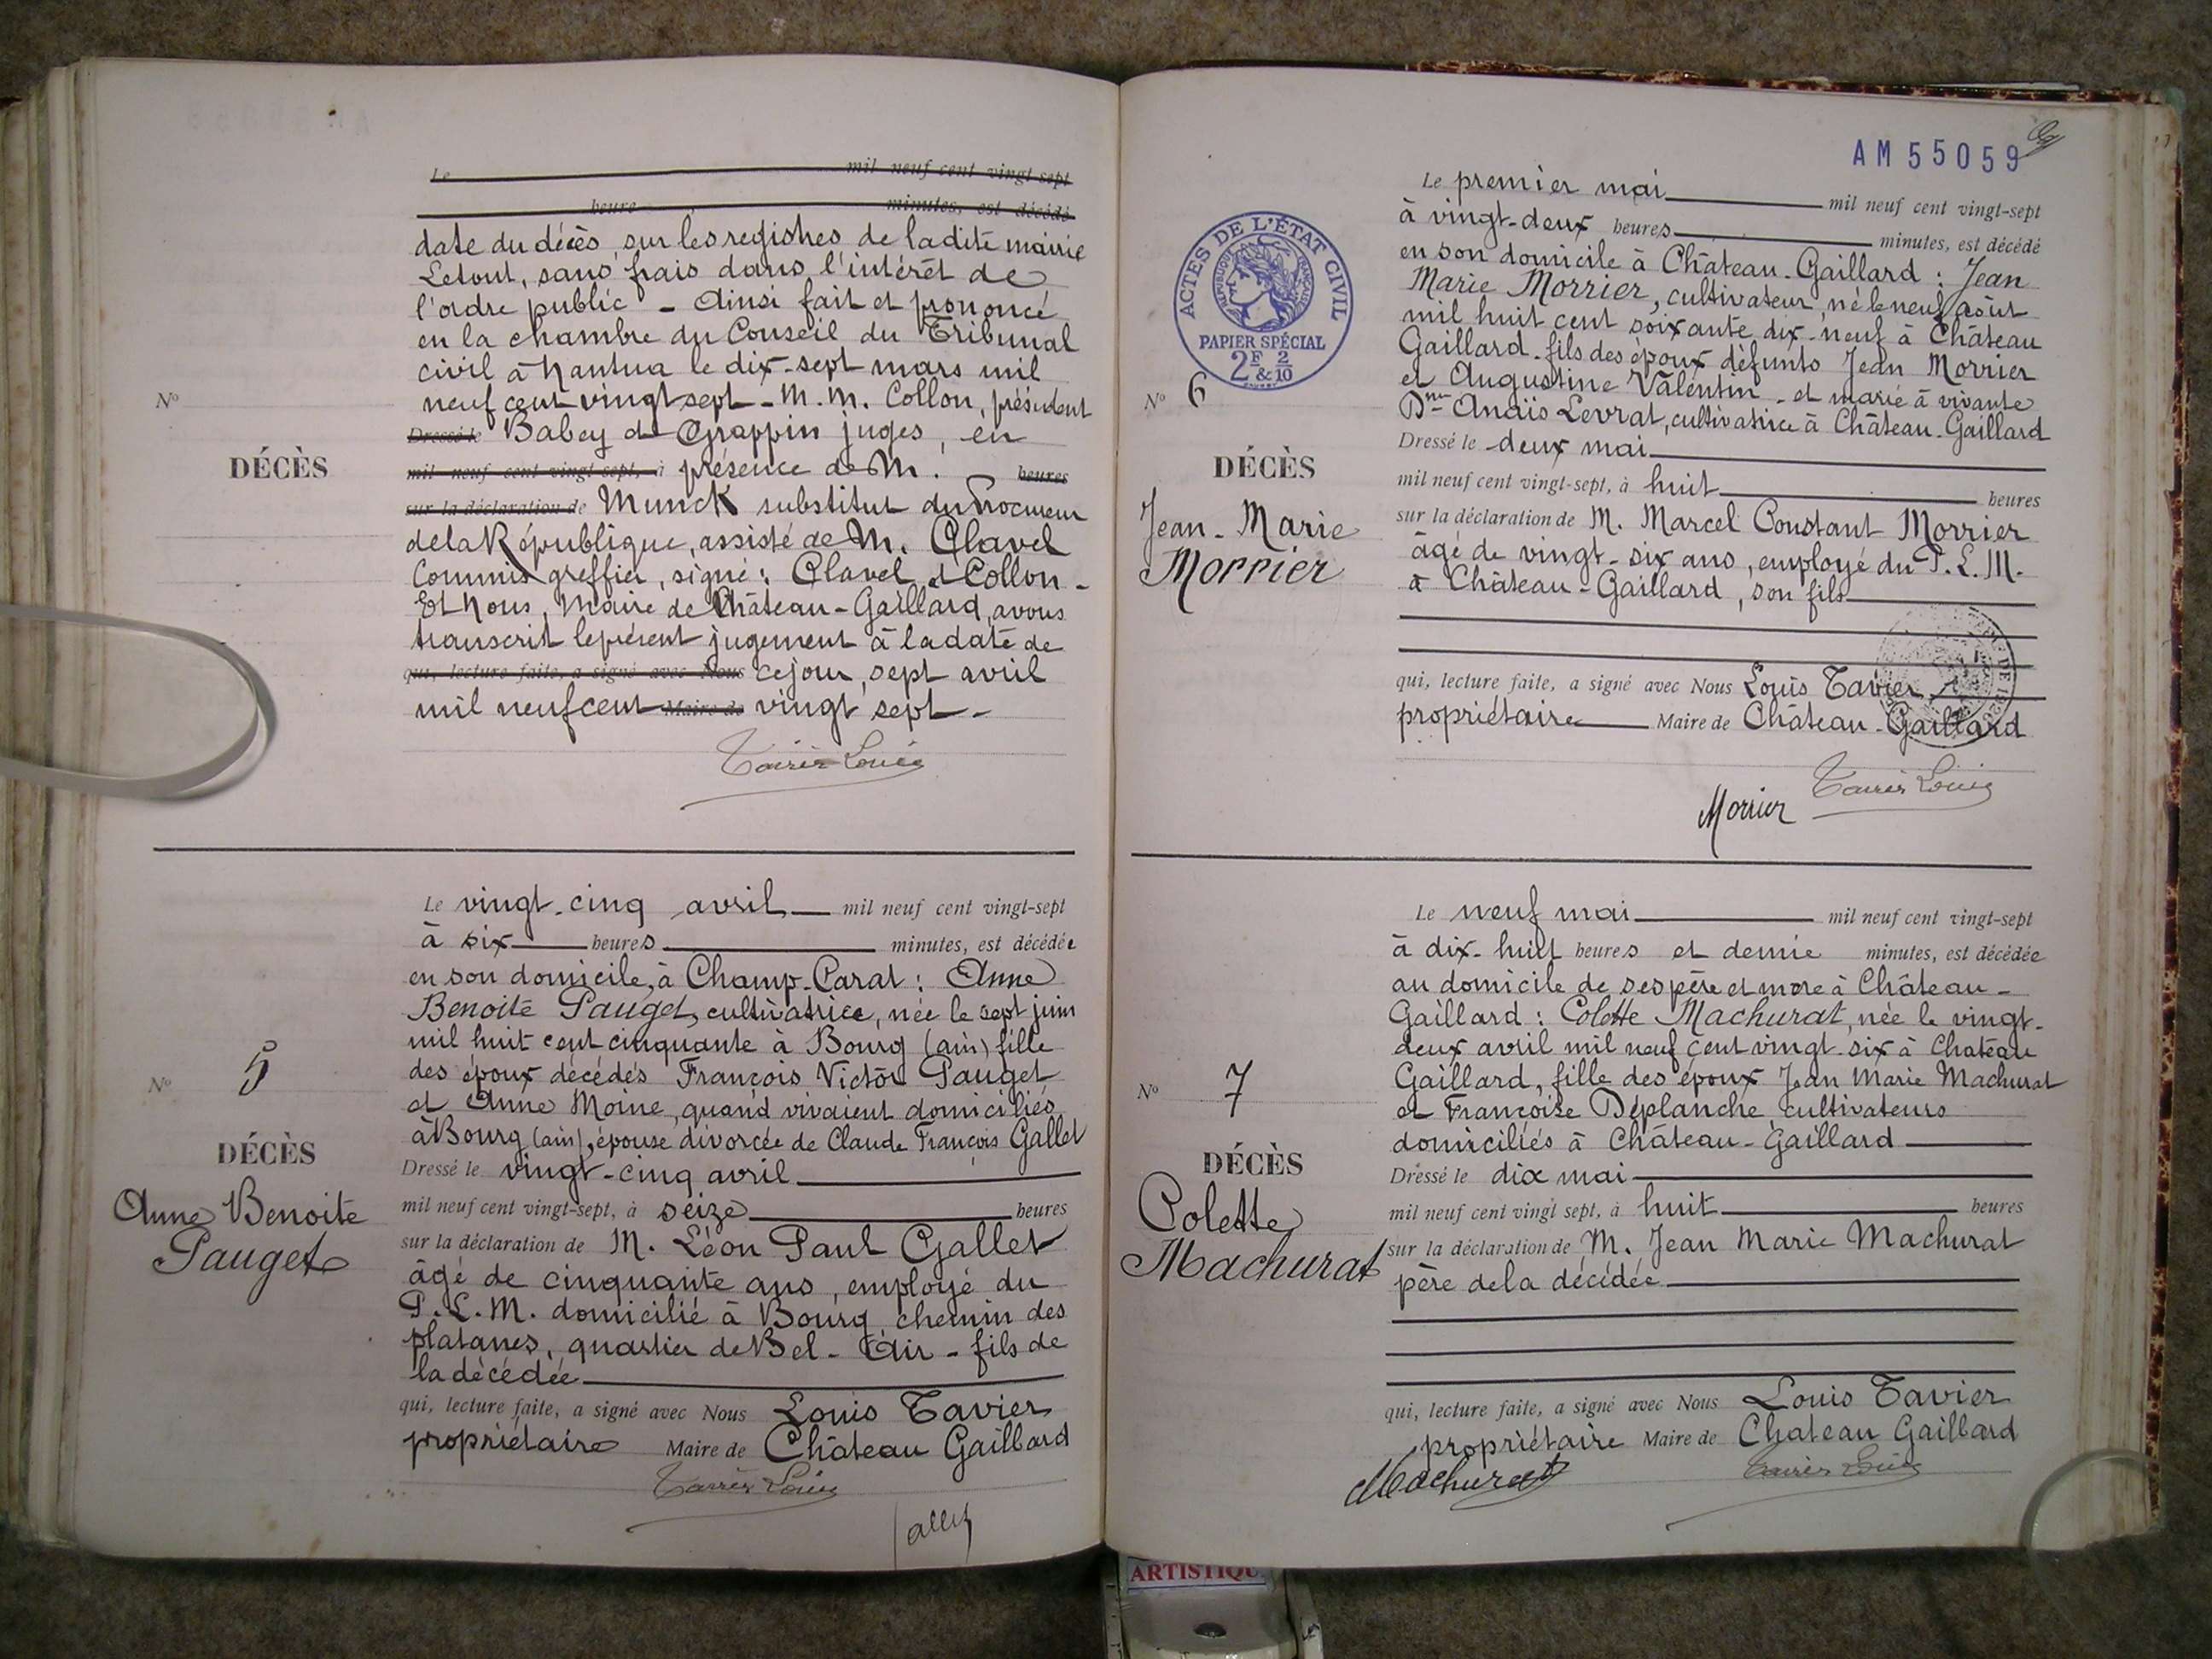 Le mil neuf cent vingt-sept
heure minutes, est décédé
date du décès sur les registres de ladite mairie
Letout, sans frais dans l'intérêt de
l'ordre public - Ainsi fait et prononcé
en la chambre du Conseil du Tribunal
civil à Nantua le dix-sept mars mil
neuf cent vingt sept - M.M. Collon, président
Dressé le Babey et Grappin juges, en
mil neuf cent vingt-sept, à présence de M. heures
sur la déclaration de Munck substitut du Procureur
de la République, assisté de M. Clavel
Commis greffier, signé: Clavel et Collon -
Et Nous, Maire de Château-Gaillard, avons
transcrit le présent jugement à la date de
qui, lecture faite, a signé avec Nous ce jour, sept avril
mil neuf cent Maire de vingt sept -
Tavier Louis
N°
DÉCÈS
Le vingt-cinq avril mil neuf cent vingt-sept
à six heures minutes, est décédée
en son domicile, à Champ-Carat : Anne
Benoite Pauget, cultivatrice, née le sept juin
mil huit cent cinquante à Bourg (ain) fille
des époux décédés François Victor Pauget
et Anne Moine, quand vivaient domiciliés
à Bourg (ain), épouse divorcée de Claude François Gallet
Dressé le vingt-cinq avril
mil neuf cent vingt-sept, à seize heures
sur la déclaration de M. Léon Paul Gallet
âgé de cinquante ans, employé du
P.L.M. domicilié à Bourg chemin des
platanes, quartier de Bel-Air - fils de
la décédée
qui, lecture faite, a signé avec Nous Louis Tavier
propriétaire Maire de Château Gaillard
Tavier Louis
Gallet
N° 5
DÉCÈS
Anne Benoite
Pauget
AM55059
Le premier mai mil neuf cent vingt-sept
à vingt-deux heures minutes, est décédé
en son domicile à Château-Gaillard : Jean
Marie Morrier, cultivateur, né le neuf août
mil huit cent soixante dix-neuf à Château
Gaillard - fils des époux défunts Jean Morrier
et Augustine Valentin - et marié à vivante
Dme Anaïs Levrat, cultivatrice à Château-Gaillard
Dressé le deux mai
mil neuf cent vingt-sept, à huit heures
sur la déclaration de M. Marcel Constant Morrier
âgé de vingt-six ans, employé du P.L.M.
à Château-Gaillard, son fils
qui, lecture faite, a signé avec Nous Louis Tavier
propriétaire Maire de Château-Gaillard
Tavier Louis
Morrier
ACTES DE L'ÉTAT CIVIL
RÉPUBLIQUE FRANÇAISE
PAPIER SPÉCIAL
2F & 2/10
N° 6
DÉCÈS
Jean-Marie
Morrier
Le neuf mai mil neuf cent vingt-sept
à dix-huit heures et demie minutes, est décédée
au domicile de ses père et mère à Château-
Gaillard : Colette Machurat, née le vingt-
deux avril mil neuf cent vingt-six à Chateau
Gaillard, fille des époux Jean Marie Machurat
et Françoise Déplanche cultivateurs
domiciliés à Château-Gaillard
Dressé le dix mai
mil neuf cent vingt sept, à huit heures
sur la déclaration de M. Jean Marie Machurat
père de la décédée
qui, lecture faite, a signé avec Nous Louis Tavier
propriétaire Maire de Chateau Gaillard
Machurat Tavier Louis
N° 7
DÉCÈS
Colette
Machurat
ARTISTIQU